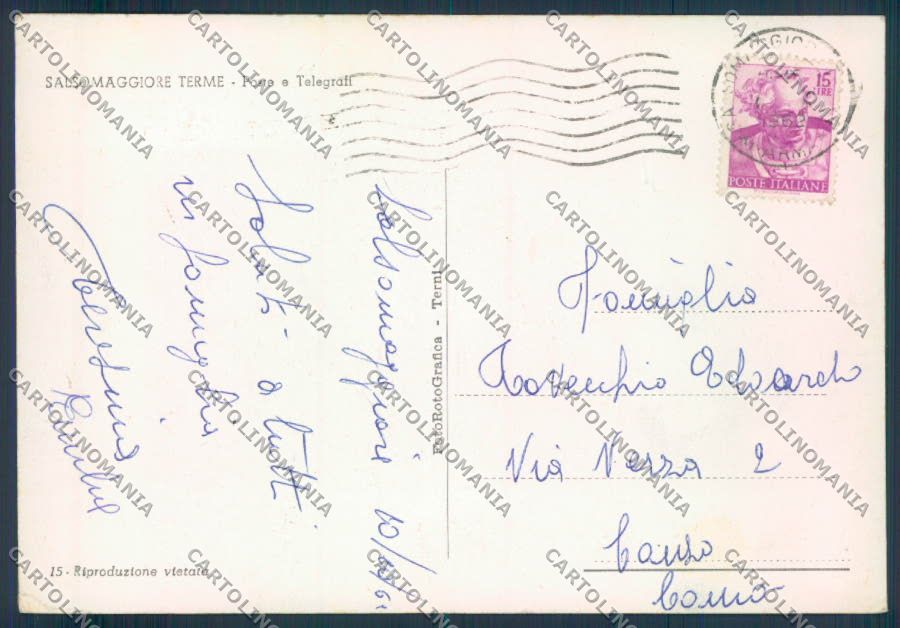 SALSOMAGGIORE TERME - Poste e Telegrafi
15 LIRE
POSTE ITALIANE
Salsomaggiore 10/
Saluti a tutti
in famiglia
FotoRotoGrafica - Terni
Famiglia
Edoardo
Via Verza 2
Canzo
Como
15 - Riproduzione vietata
CARTOLINOMANIA